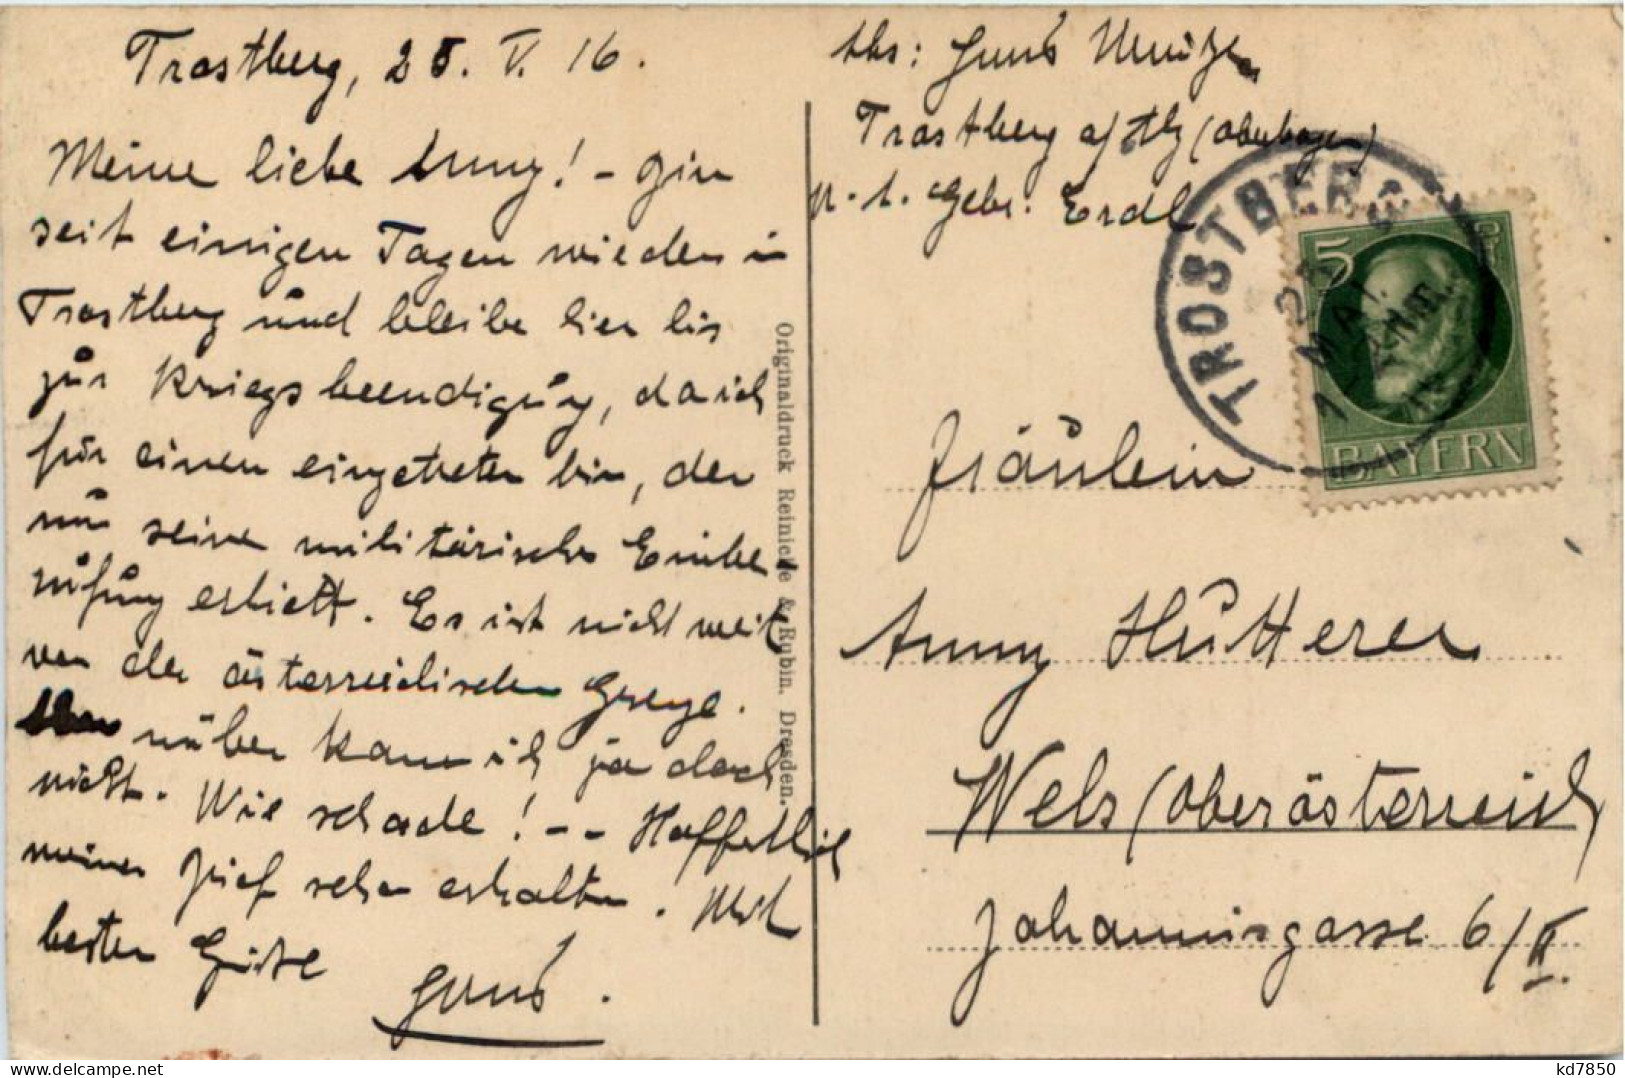 Trostberg, 28. V. 16.
Meine liebe Anny! – Bin
seit einigen Tagen wieder in
Trostberg und bleibe hier bis
zur Kriegsbeendigung, da ich
für einen eingetreten bin, der
nun seine militärische Einbe-
rufung erhielt. Es ist nicht weit
von der österreichischen Grenze.
nüber kann ich ja doch
nicht. Wie schade! -- Hoffentlich
meinen Brief schon erhalten. Mit
besten Grüße
Abs:
Trostberg a/Alz (Oberbayern)
Gebr. Erdl
TROSTBERG
MAI
5
BAYERN
Fräulein
Anny Hütterer
Wels (Oberösterreich)
Johannisgasse 6/II.
Originaldruck Reinicke & Rubin, Dresden.
www.delcampe.net
kd7850